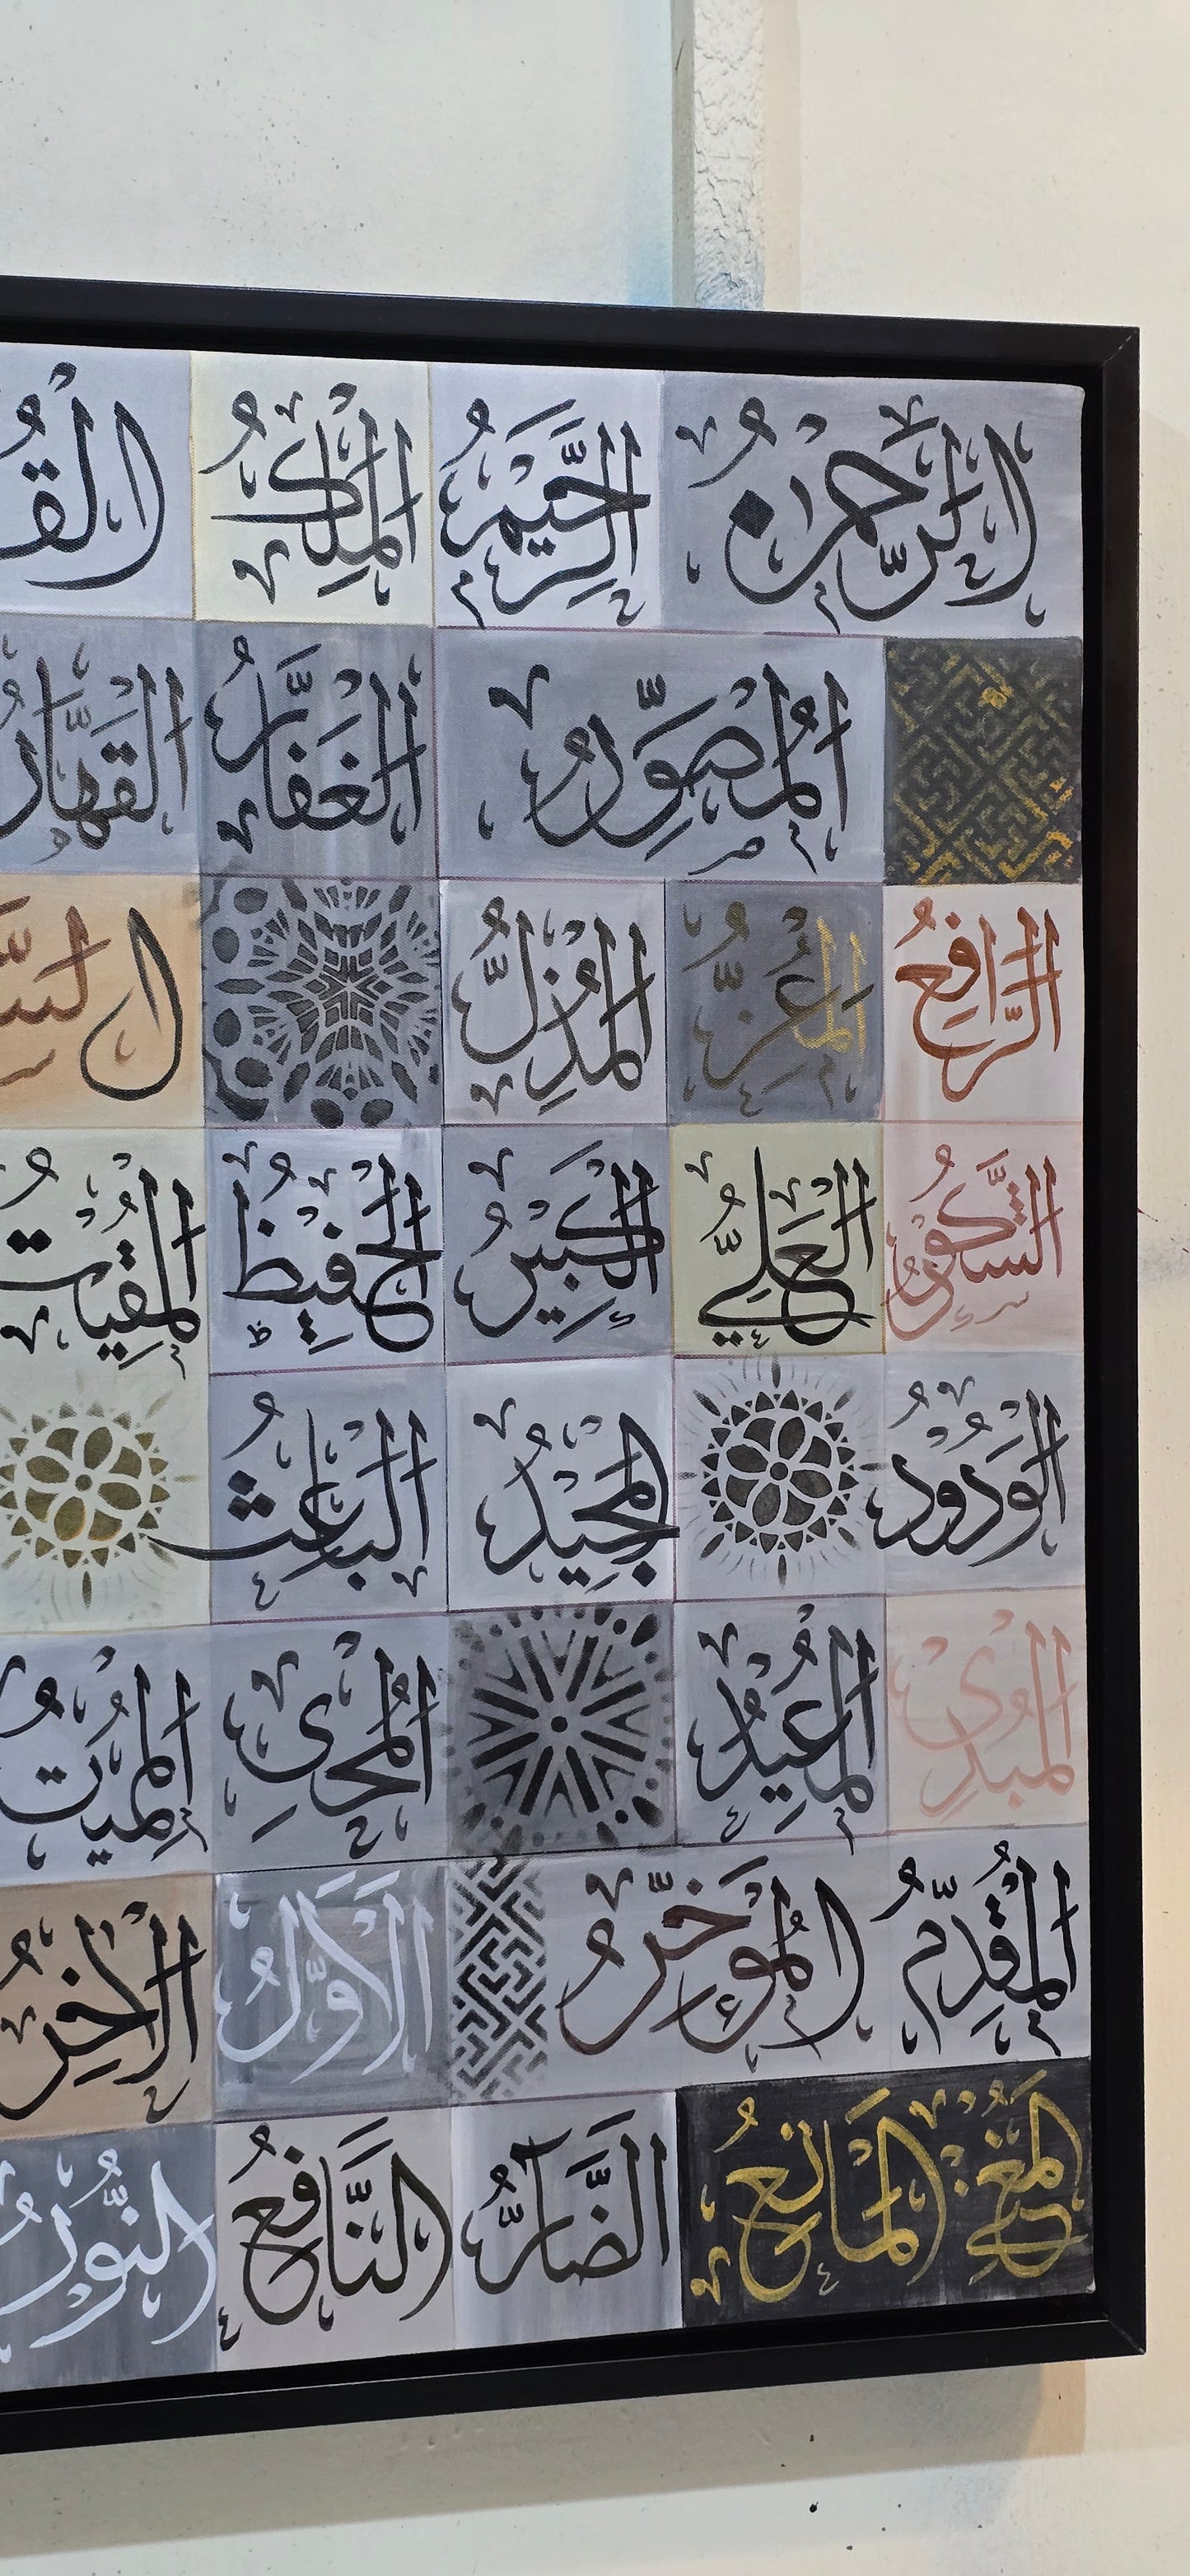 الرَّحْمٰنُ الرَّحِيْمُ الْمَلِكُ
الْمُصَوِّرُ الْغَفَّارُ الْقَهَّارُ
الرَّافِعُ الْمُعِزُّ الْمُذِلُّ
الشَّكُوْرُ الْعَلِيُّ الْكَبِيْرُ الْحَفِيْظُ الْمُقِيْتُ
الْوَدُوْدُ الْمَجِيْدُ الْبَاعِثُ
الْمُبْدِئُ الْمُعِيْدُ الْمُحْيِ الْمُمِيْتُ
الْمُقَدِّمُ الْمُؤَخِّرُ الْأَوَّلُ الْآخِرُ
الْمُغْنِي الْمَانِعُ الضَّارُّ النَّافِعُ النُّوْرُ